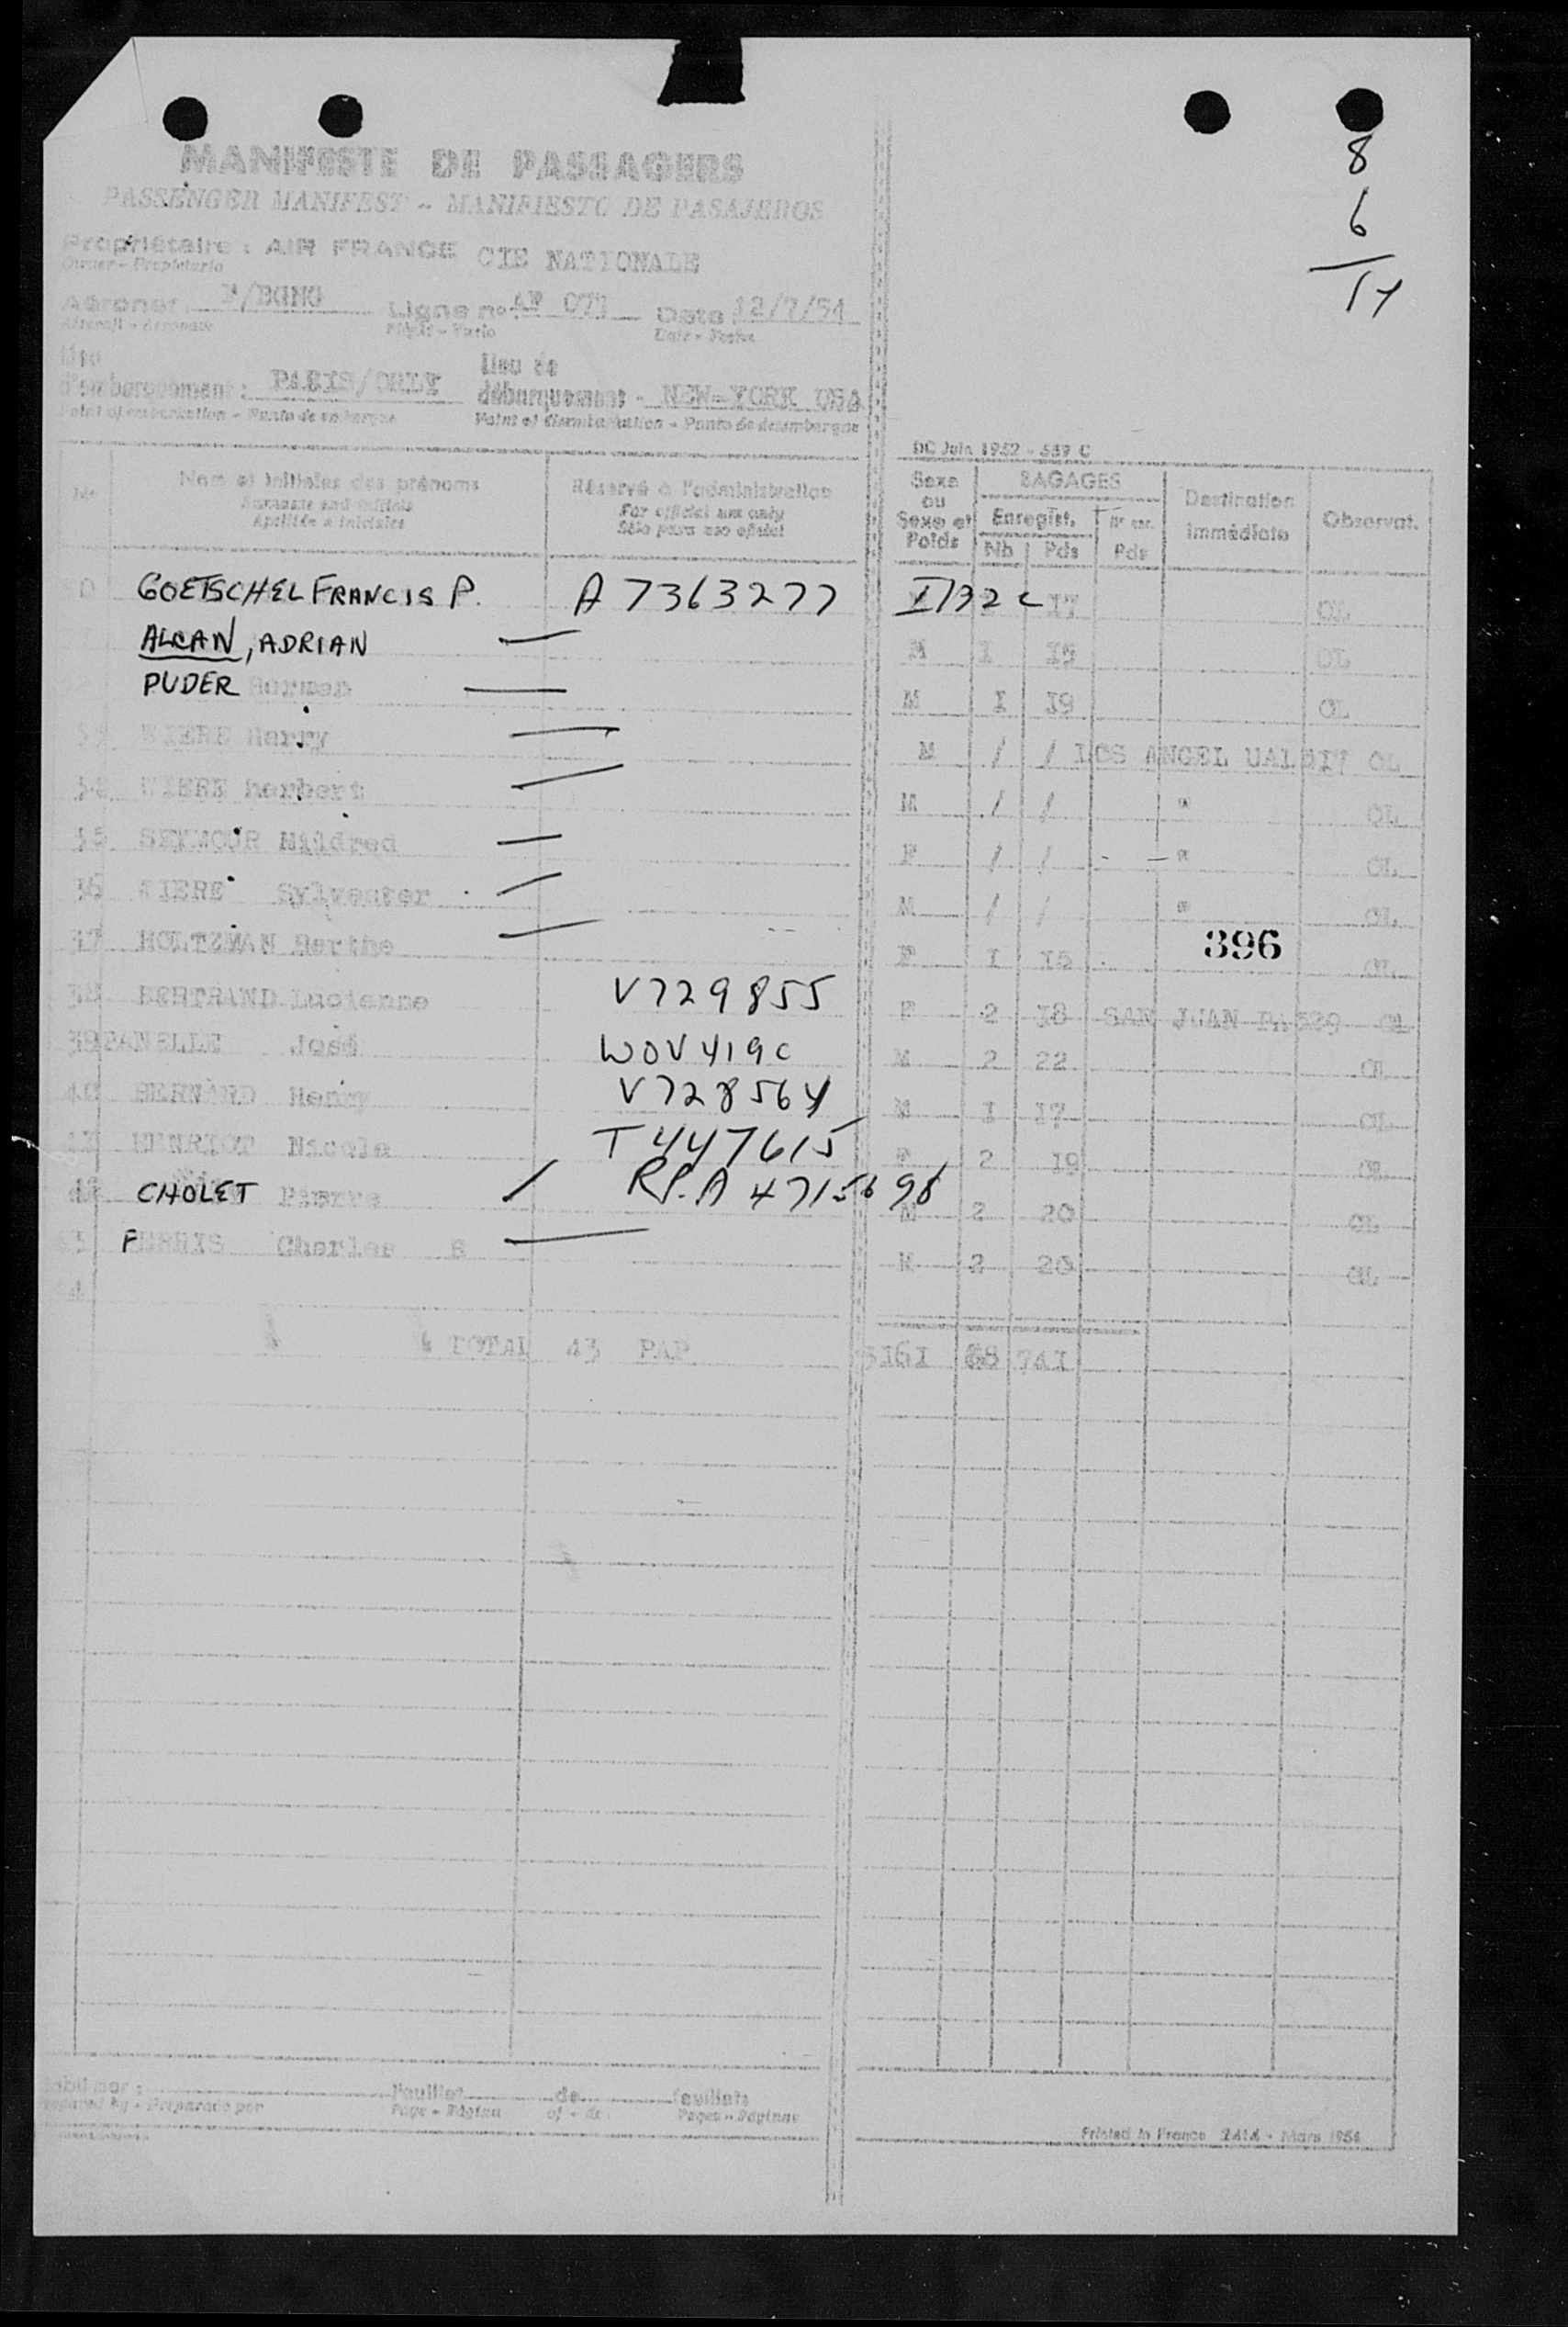 8
6
14
MANIFESTE DE PASSAGERS
PASSENGER MANIFEST - MANIFIESTO DE PASAJEROS
Propriétaire : AIR FRANCE CIE NATIONALE
Owner - Propietario
Aéronef Ligne no AF 071 Date 12/7/54
Aircraft - Aeronave Date - Fecha
Lieu d'embarquement : PARIS/ORLY Lieu de débarquement - NEW-YORK USA
Point of embarkation - Punto de embarque Point of disembarkation - Punto de desembarque
DC Juin 1952 - 539 C
No Nom et initiales des prénoms Réservé à l'administration Sexe ou Sexe et Poids BAGAGES Destination immédiate Observat.
Surname and initials For official use only Enregist.
Apellido e iniciales Sólo para uso oficial Nb Pds Pds
GOETSCHEL FRANCIS P. A 7363277 I732 c 17 OL
ALCAN, ADRIAN — M I I5 OL
PUDER Herman — M I I9 OL
WIERE Harry — M / / LOS ANGEL UAL OL
34 WIERE herbert — M / / " OL
35 SEYMOUR Mildred — F / / - - " OL
36 WIERE Sylvester — M / / " OL
37 HOLTZMAN Berthe — F I I5 396 OL
38 BERTRAND Lucienne V729855 F 2 I8 SAN JUAN OL
39 José WOV419C M 2 22 OL
40 BERNARD Henry V728564 M I I7 OL
41 HENRIOT Nicole T447615 F 2 I9 OL
42 CHOLET Pierre / R.P. A 4715698 M 2 20 OL
43 FERRIS Charles — M 2 20 OL
44
TOTAL 43 PAP 3I6I 68 74I
Feuillet de feuillets
Prepared by - Preparado por Page - Página of - de Pages - Páginas
Printed in France - Mars 1954